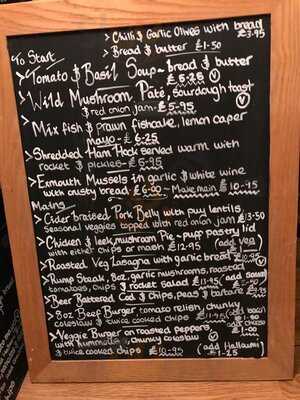 > Chilli & Garlic Olives with bread £3-95
> Bread & butter £1-50
To Start
> Tomato & Basil Soup - bread & butter
£5.25 V
> Wild Mushroom Pate, sourdough toast
& red onion jam - £5-95 V
> Mix fish & prawn fishcake, lemon caper
mayo - £6-25
> Shredded Ham Hock served warm with
rocket & pickles - £5-95
> Exmouth Mussels in garlic & white wine
with crusty bread £6-00 - Make main £10-95
Mains
> Cider Braised Pork Belly with puy lentils
Seasonal veggies topped with red onion jam £13-50
> Chicken & leek, mushroom Pie - puff pastry lid
with either chips or mash £12-95 (add veg
> Roasted Veg Lasagna with garlic bread V
> Rump Steak, 8oz, garlic mushrooms, roasted
tomatoes, chips & rocket salad £13-95 (add sauce
> Beer Battered Cod & chips, peas & tartare
> 8oz Beef Burger tomato relish, chunky
coleslaw & twice cooked chips £11-95 (add bacon
add cheese
1-00
> Veggie Burger on roasted peppers
with hummus, chunky coleslaw V
& twice cooked chips (add Halloumi)
£1-25